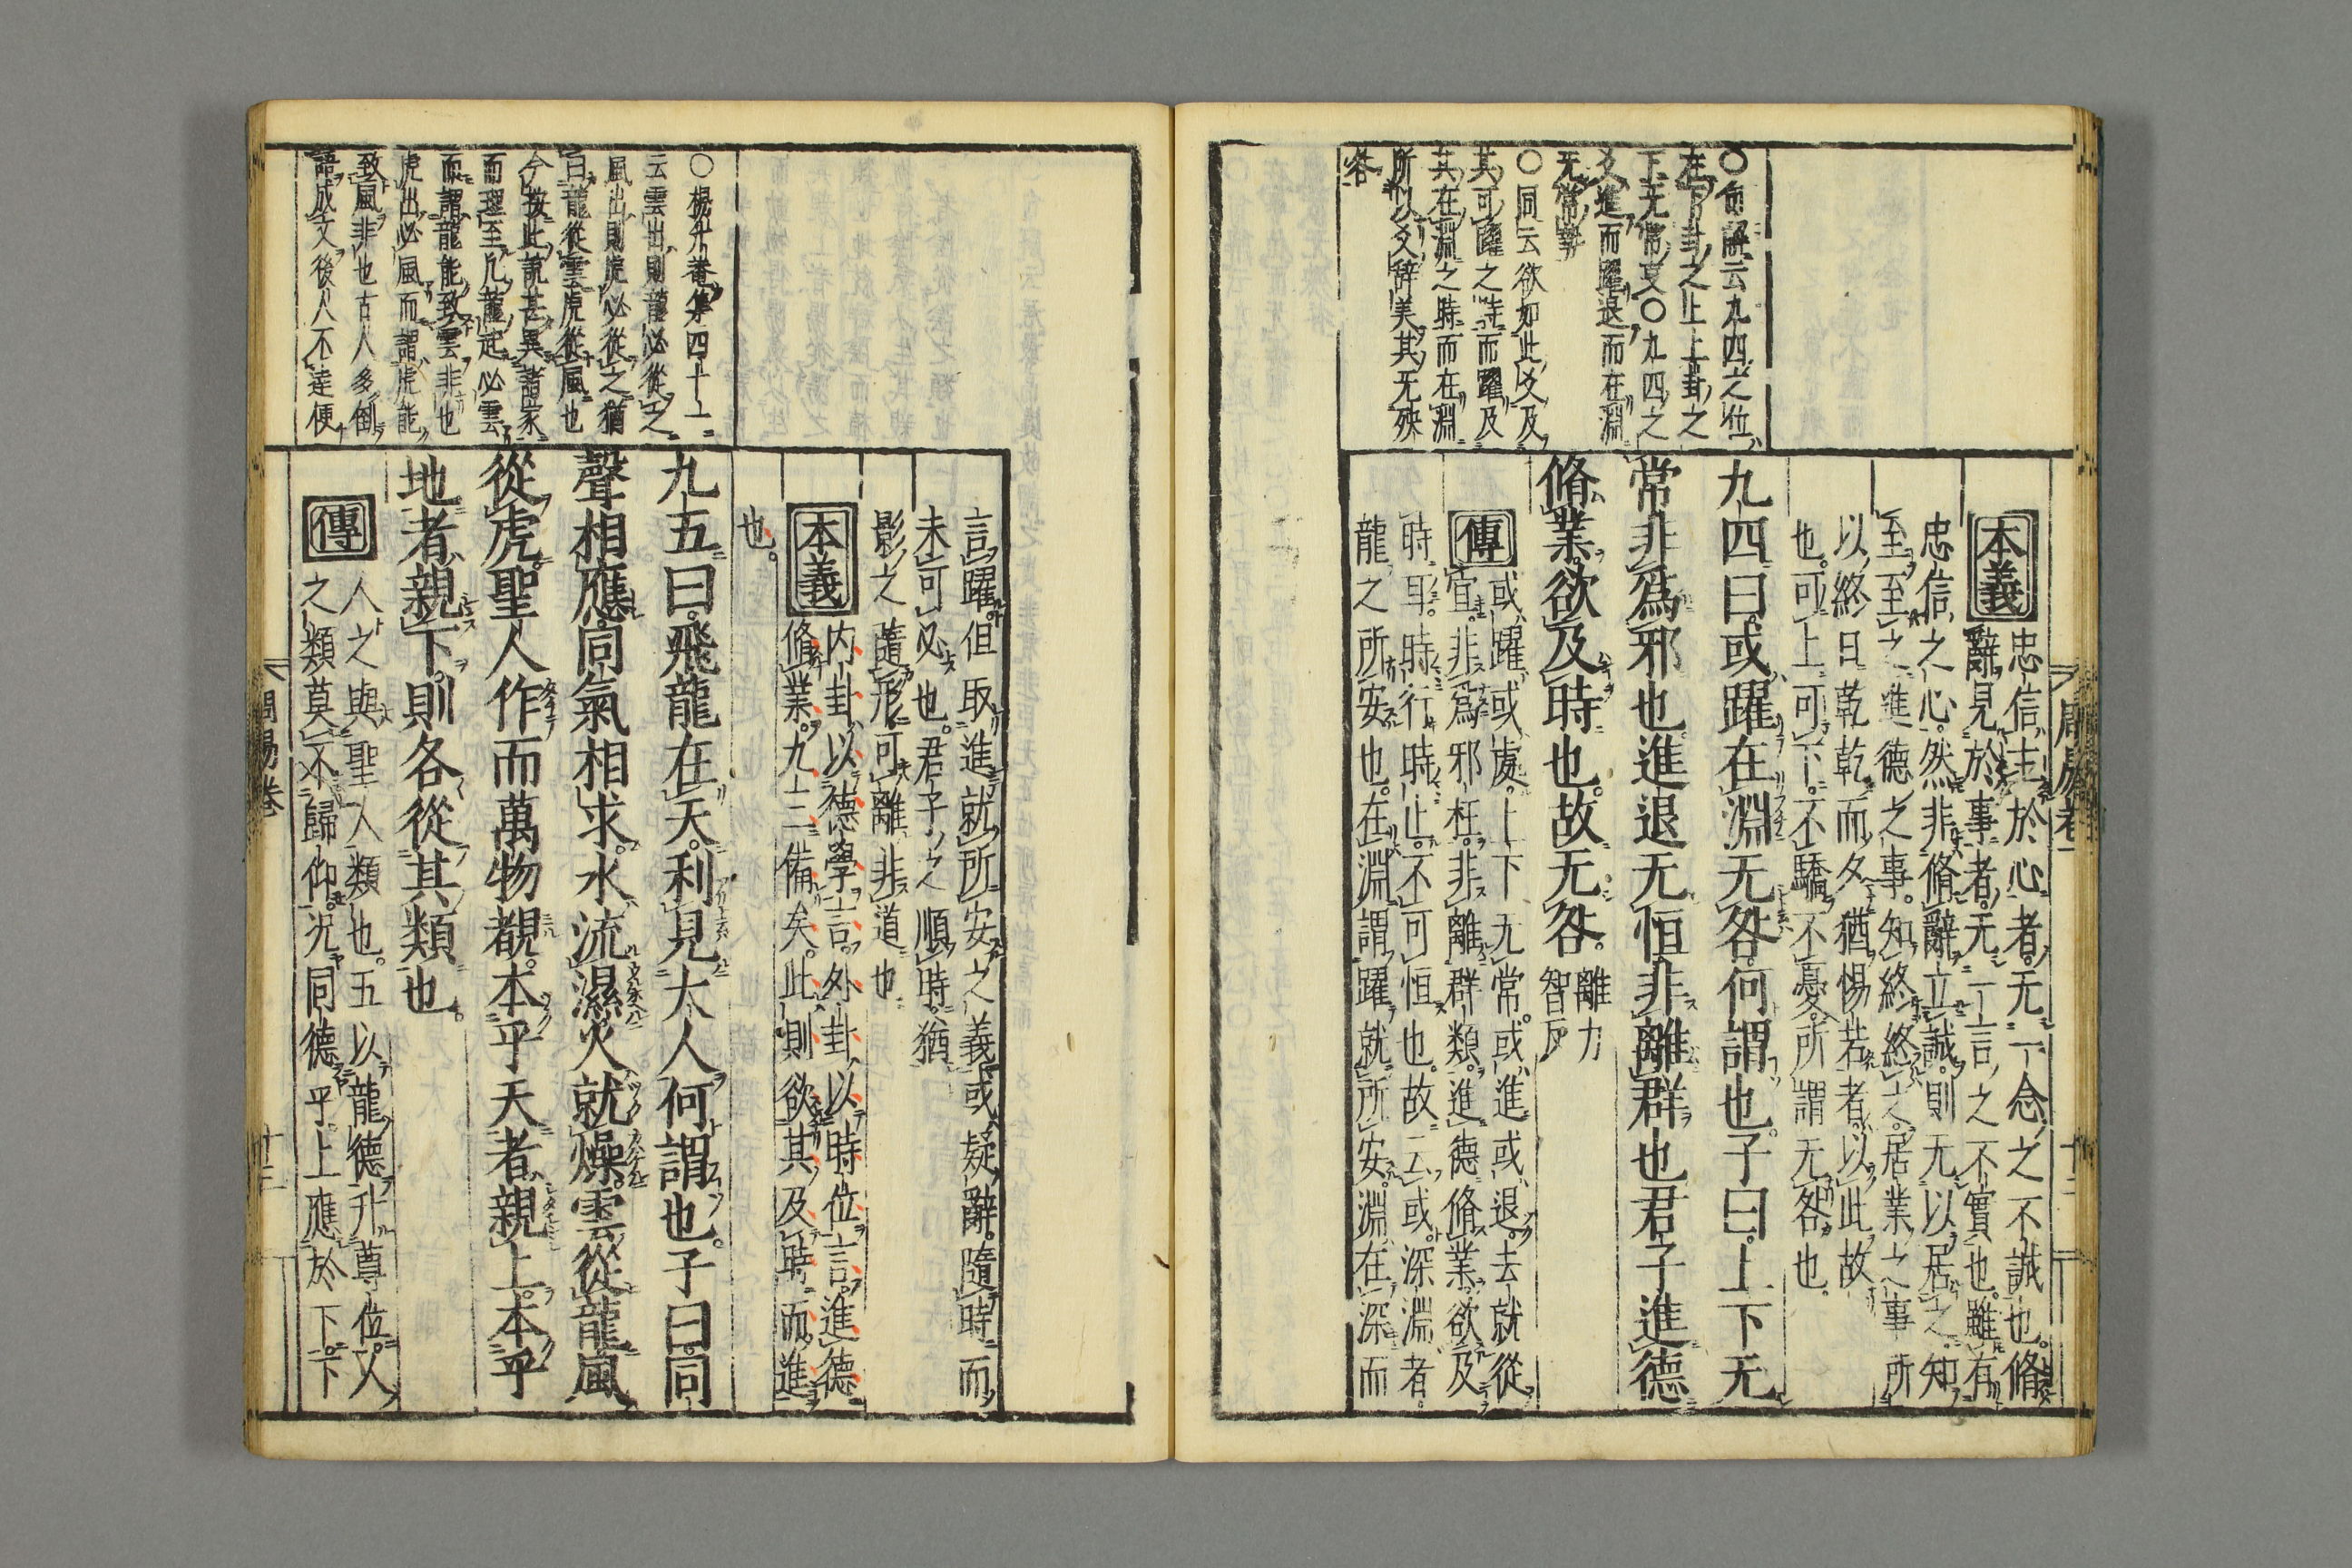 ○句解云九四之位
在下卦之上上卦之
下无常文○九四之
爻進而躍退而在淵
无常等
○同云欲如此爻及
其可躍之時而躍及
其在淵之時而在淵
所以爻辞美其无殃
咎
本義
忠信主於心者无一念之不誠也。脩
辭見於事者。无一言之不實也。雖有
忠信之心。然非脩辭立誠。則无以居之。知
至至之進德之事。知終終之居業之事所
以終日乾乾而夕猶惕若者。以此故
也。可上可下。不驕不憂。所謂无咎也。
九四曰或躍在淵无咎。何謂也。子曰。上下无
常非爲邪也進退无恒非離群也君子進德
脩業。欲及時也。故无咎。離力智反
傳
或躍或處。上下无常。或進或退。去就從
宜。非爲邪枉。非離群類。進德脩業欲及
時耳。時行時止。不可恒也。故云或。深淵者。
龍之所安也。在淵謂躍就所安。淵在深而
言躍。但取進就所安之義或疑辭。隨時而
未可必也。君子之順時。猶
影之隨形。可離非道也
本義
内卦以德學言。外卦以時位言。進德
脩業。九三備矣。此則欲其及時而進
也。
○楊升菴集四十一
云雲出則龍必從之
風出則虎必從之猶
曰龍從雲虎從風也
今按此説甚異諸家
而理至凡龍起必雲
而謂龍能致雲非也
虎出必風而謂虎能
致風非也古人多倒
語成文後人不達便
九五曰。飛龍在天。利見大人何謂也。子曰。同
聲相應。同氣相求。水流濕火就燥。雲從龍風
從虎。聖人作而萬物覩。本乎天者親上。本乎
地者親下。則各從其類也。
傳
人之與聖人類也。五以龍德升尊位。人
之類莫不歸仰。况同德乎。上應於下。下
周易卷
十三